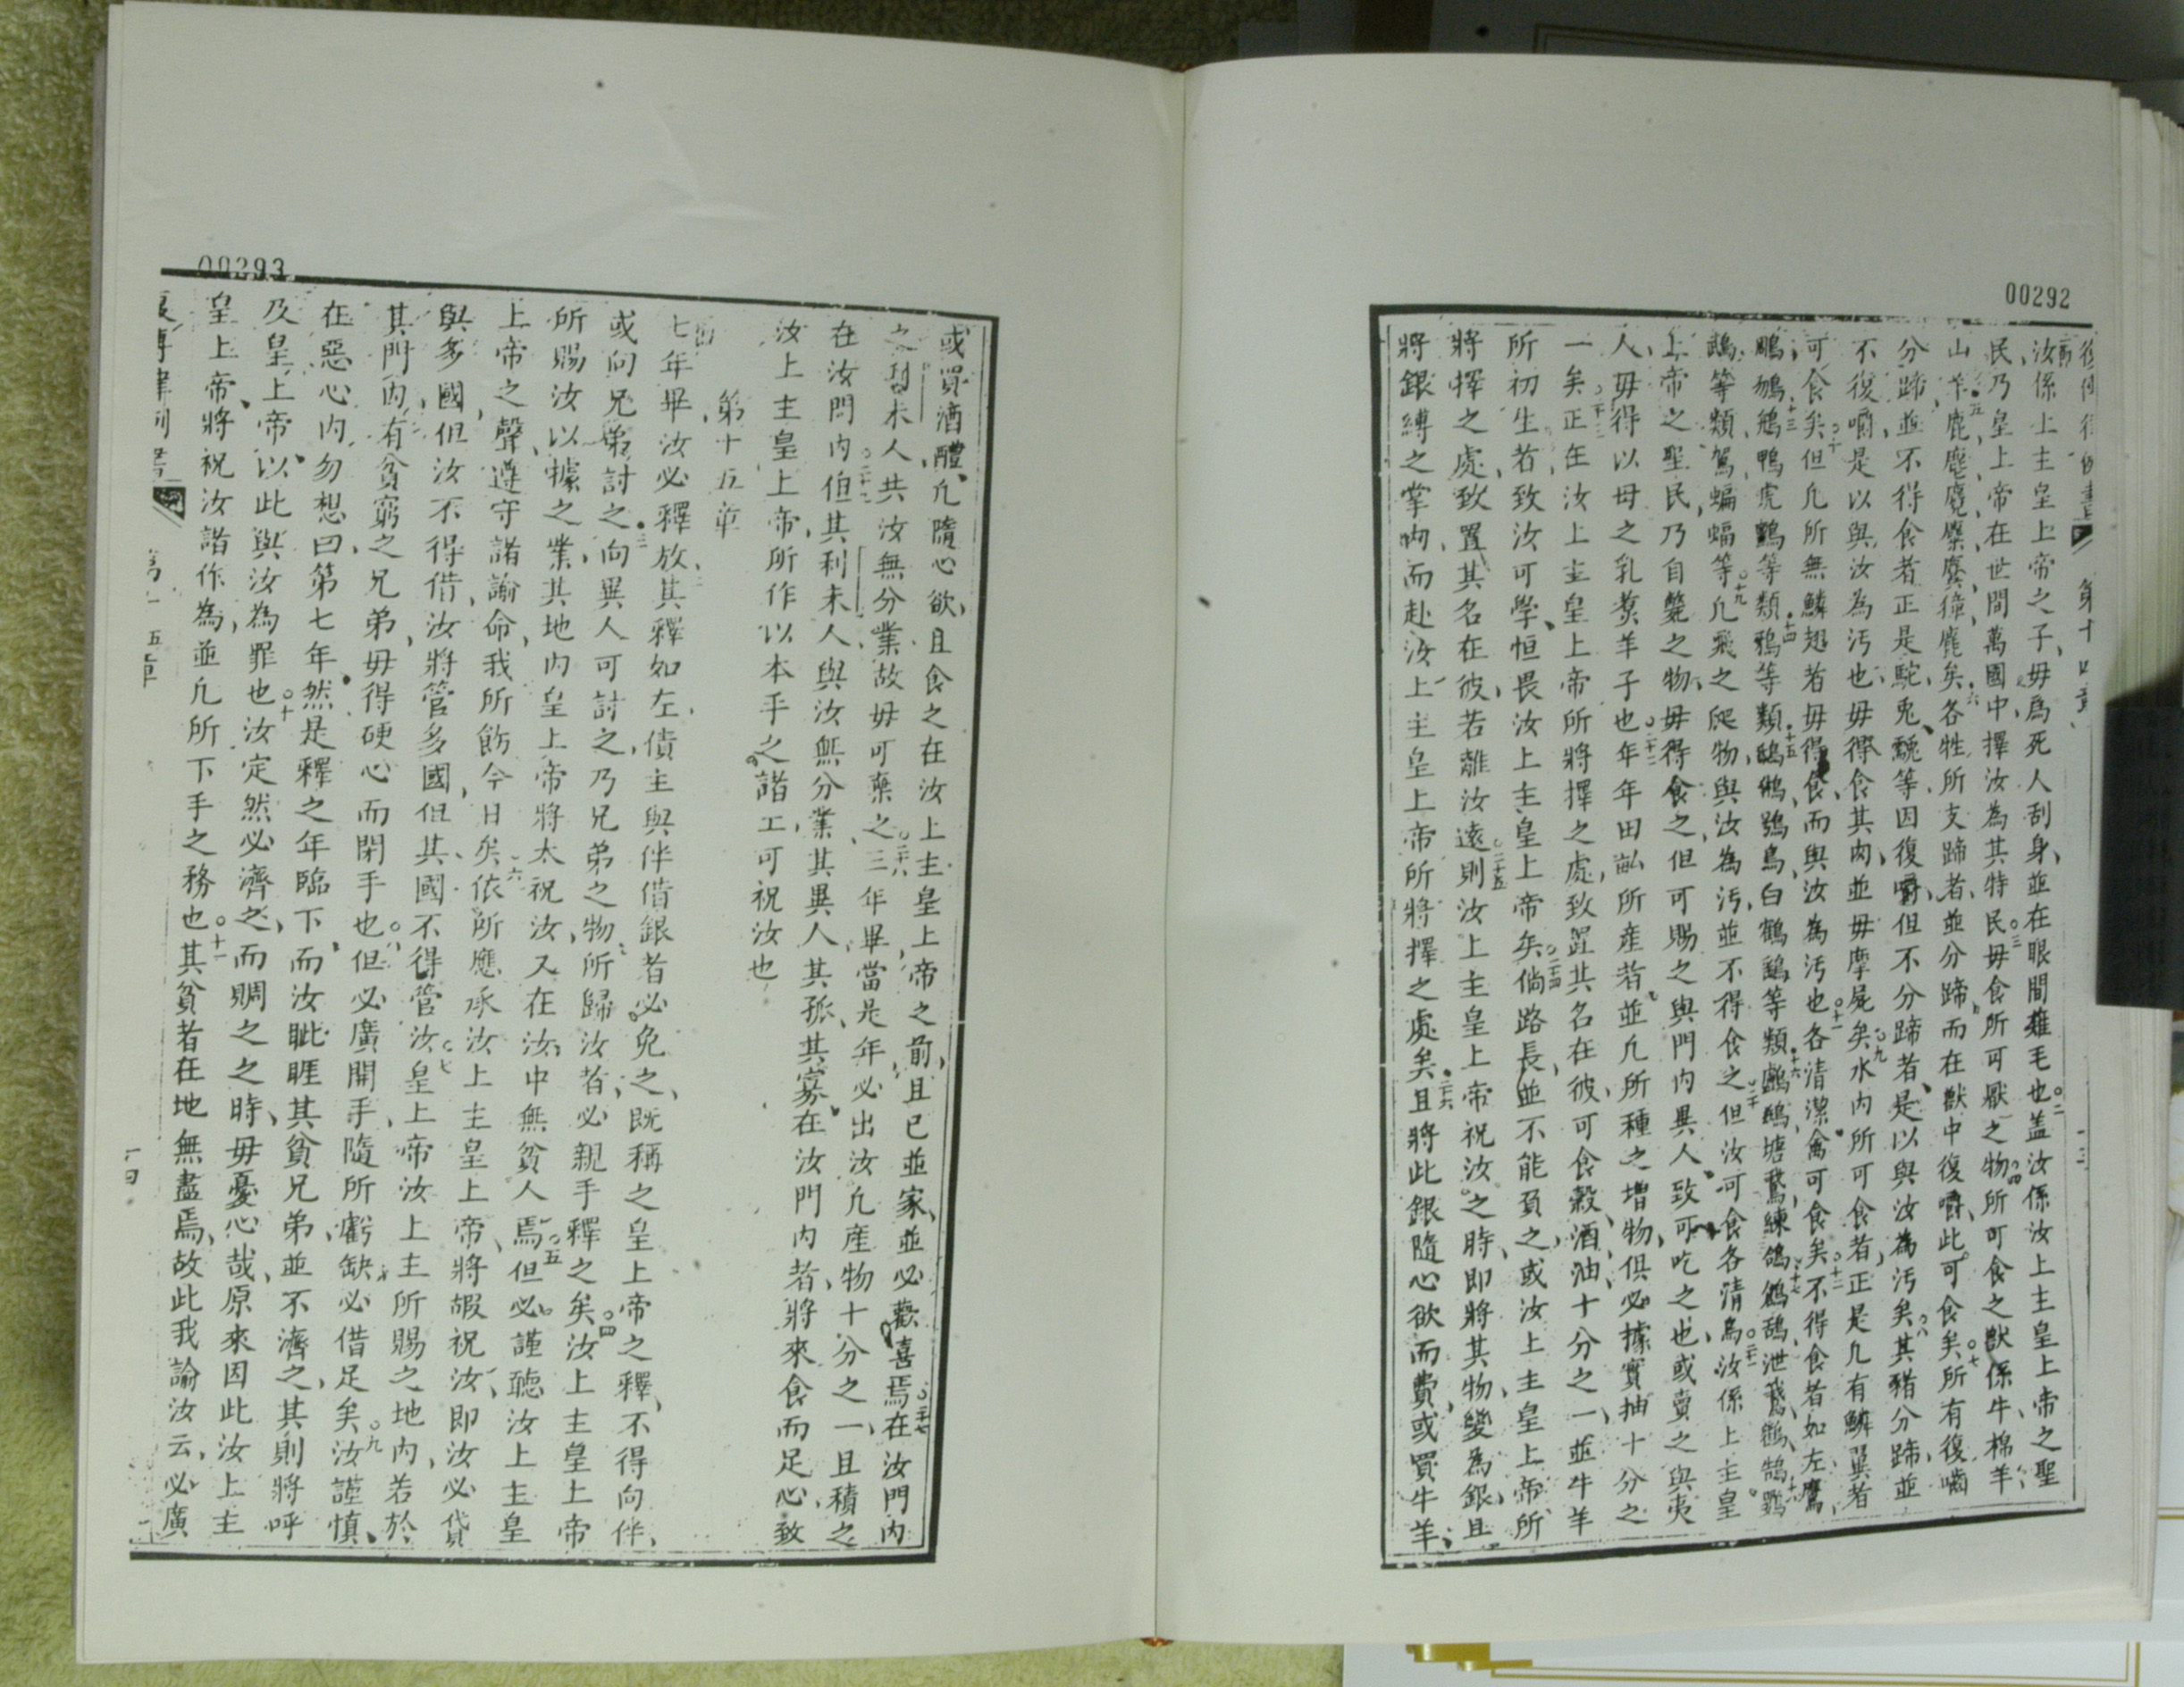 00292
第十四章
汝係上主皇上帝之子毋爲死人刮身並在眼間薙毛也○二盖汝係汝上主皇上帝之聖
民乃皇上帝在世間萬國中擇汝為其特民○三毋食所可厭之物○四所可食之獸係牛棉羊
山羊○五鹿麀麋獐麂矣○六各牲所支蹄者並分蹄而在獸中復嚼此可食矣○七所有復嚼
分蹄並不得食者正是駝兎等因復嚼但不分蹄者是以與汝為汚矣○八其豬分蹄並
不復嚼是以與汝為汚也毋得食其肉並毋摩屍矣○九水内所可食者正是凡有鱗翼者
可食矣○十但凡所無鱗翅者毋得食而與汝為汚也○十一各清潔禽可食矣○十二不得食者如左鷹
鵰○十三鴨虎等類○十四鴉等類○十五鴟鳥白鶴等類○十六塘鵞○十七○十八
等類蝙蝠等○十九凡飛之爬物與汝為汚並不得食之○二十但汝可食各清鳥○二一汝係上主皇
上帝之聖民乃自斃之物毋得食之但可賜之與門内異人致可吃之也或賣之與夷
人毋得以母之乳煮羊子也○二十二年年田畝所產者並凡所種之增物俱必據實抽十分之
一矣○二十三正在汝上主皇上帝所將擇之處致置其名在彼可食穀酒油十分之一並牛羊
所初生者致汝可學恒畏汝上主皇上帝矣○二十四倘路長並不能負之或汝上主皇上帝所
將擇之處致置其名在彼若離汝遠○二十五則汝上主皇上帝祝汝之時即將其物變為銀且
將銀縛之掌内而赴汝上主皇上帝所將擇之處矣○二十六且將此銀隨心欲而費或買牛羊
00293
或買酒醴凡隨心欲且食之在汝上主皇上帝之前且已並家並必歡喜焉○二十七在汝門内
之利未人共汝無分業故毋可棄之○二十八三年畢當是年必出汝凡產物十分之一且積之
在汝門内○二十九但其利未人與汝無分業其異人其孤其寡在汝門内者將來食而足心致
汝上主皇上帝所作以本手之諸工可祝汝也
第十五章
七年畢汝必釋放○二其釋如左債主與伴借銀者必免之既稱之皇上帝之釋不得向伴
或向兄弟討之○三向異人可討之乃兄弟之物所歸汝者必親手釋之矣○四汝上主皇上帝
所賜汝以據之業其地内皇上帝將太祝汝又在汝中無貧人焉○五但必謹聽汝上主皇
上帝之聲遵守諸諭命我所飭今日矣○六依所應承汝上主皇上帝將嘏祝汝即汝必貸
與多國但汝不得借汝將管多國但其國不得管汝○七皇上帝汝上主所賜之地内若於
其門内有貧窮之兄弟毋得硬心而閉手也○八但必廣開手隨所虧缺必借足矣○九汝謹慎
在惡心内勿想曰第七年然是釋之年臨下而汝眦睚其貧兄弟並不濟之其則將呼
及皇上帝以此與汝為罪也○十汝定然必濟之而賙之之時毋憂心哉原來因此汝上主
皇上帝將祝汝諸作為並凡所下手之務也○十一其貧者在地無盡焉故此我諭汝云必廣
復傳律例書 第十五章 十四